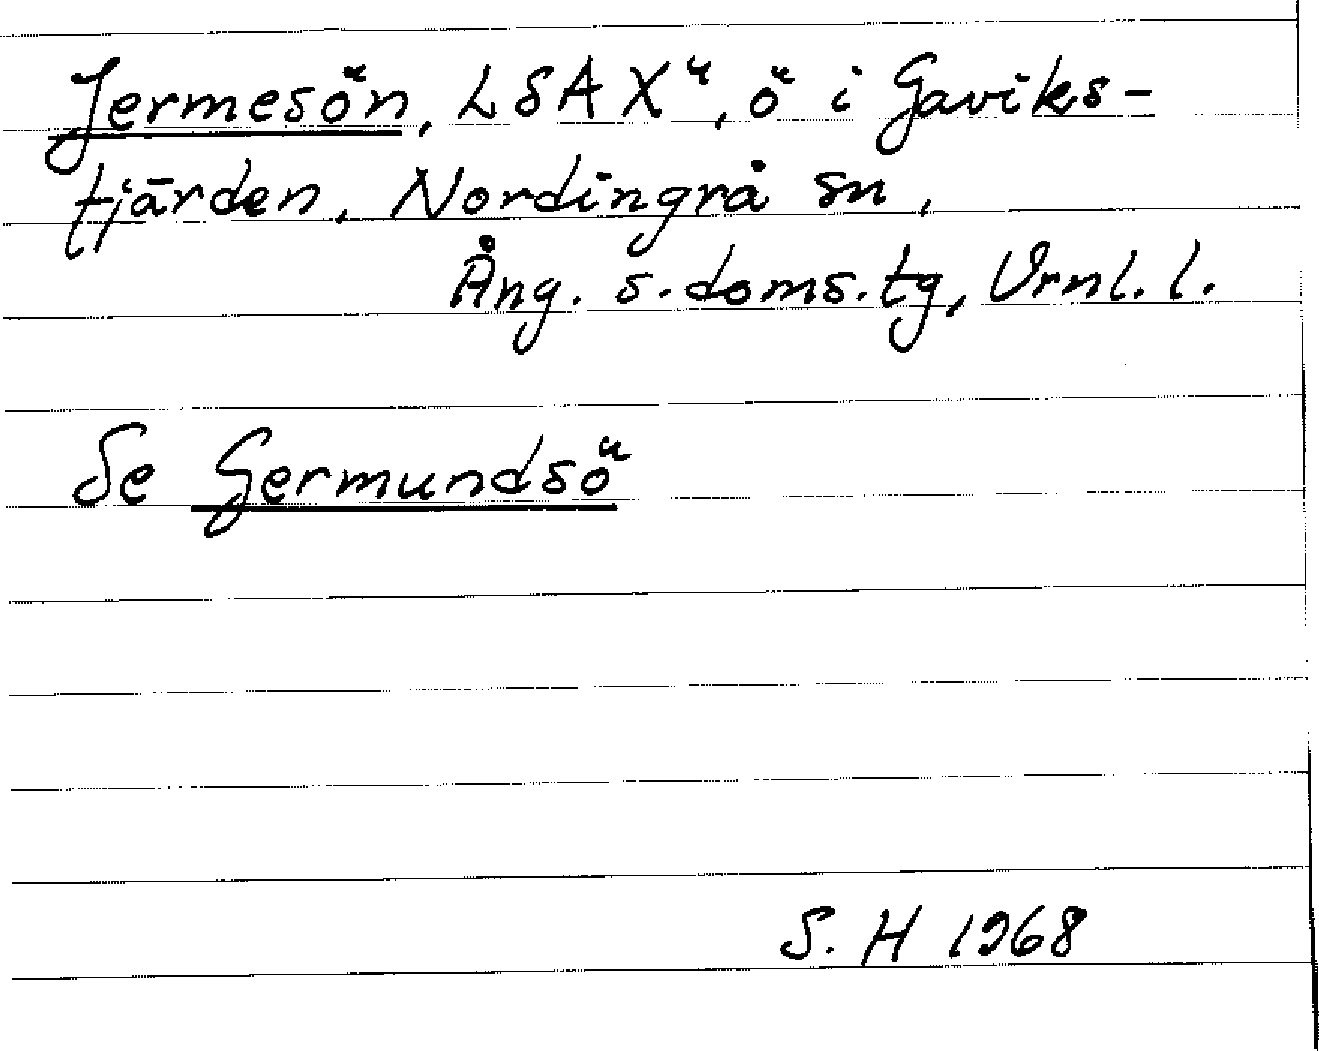 Jermesön, LSA X", ö i Gaviks-
fjärden, Nordingrå sn,
Ång. s. doms. tg, Vrnl. l.
Se Germundsö
S. H 1968